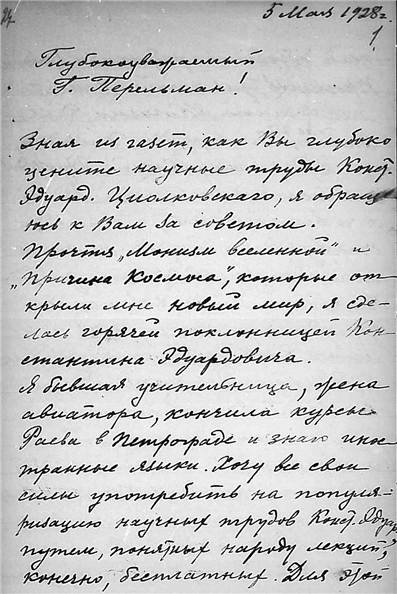 5 Мая 1928 г.
1
Глубокоуважаемый
Г. Перельман!
Зная из газет, как Вы глубоко
цените научные труды Конст.
Эдуард. Циолковскаго, я обращ
юсь к Вам за советом.
Прочтя „Монизм вселенной" и
„Причина Космоса", которые от
крыли мне новый мир, я сде-
лась горячей поклонницей Кон
стантина Эдуардовича.
Я бывшая учительница, жена
авиатора, кончила курсы
Раева в Петрограде и знаю инос
транные языки. Хочу все свои
силы употребить на популя-
ризацию научных трудов Конст. Эдуар
путем, понятных народу лекций,
конечно, бесплатных. Для этой